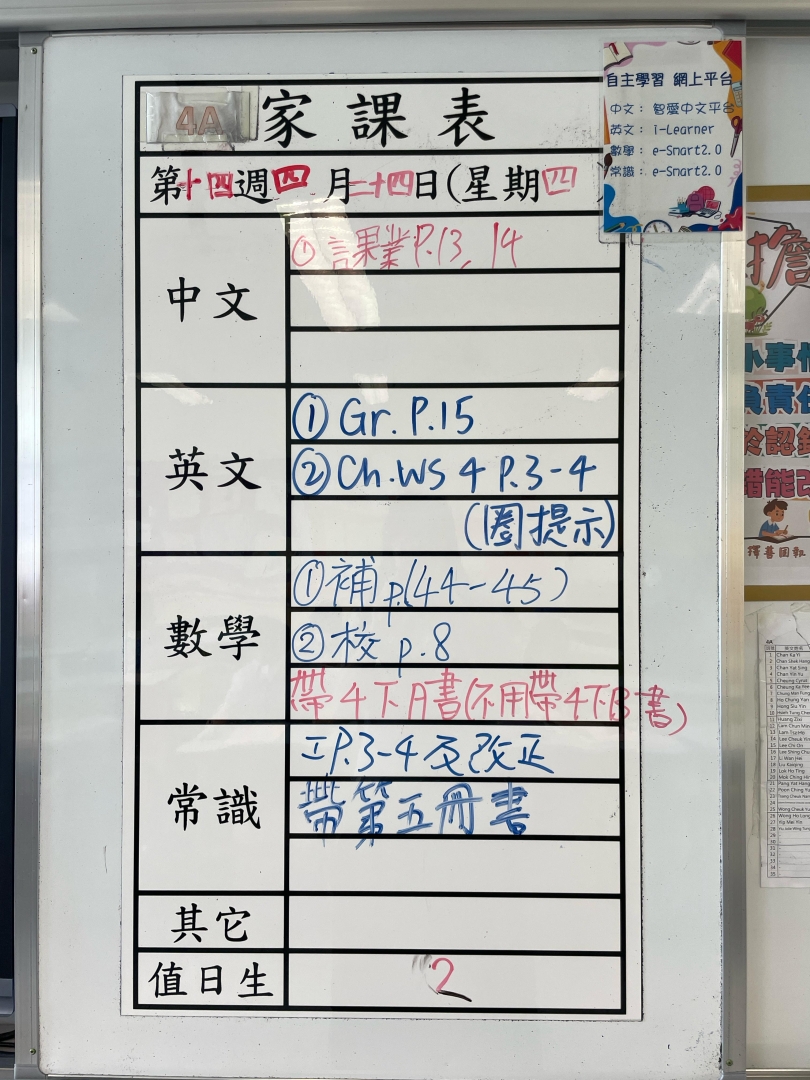 4A 家課表
第十四週四月二十四日(星期四
中文
① 課業P.13, 14
英文
① Gr. P.15
② Ch.WS 4 P.3-4
(圈提示)
數學
① 補 p.(44-45)
② 校 p.8
帶4下A書(不用帶4下B書)
常識
工P.3-4及改正
帶第五冊書
其它
值日生
2
自主學習 網上平台
中文： 智愛中文平台
英文： i-Learner
數學： e-Smart2.0
常識： e-Smart2.0
小事情
負責任
擇善固報
4A